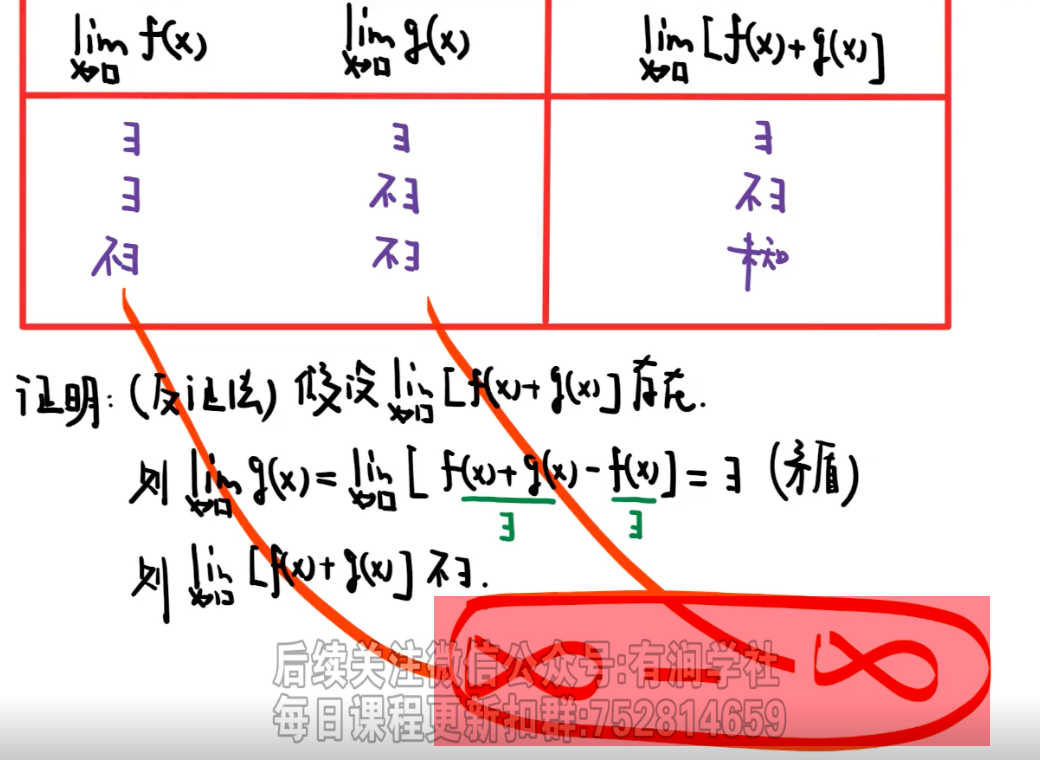 lim x→□ f(x) lim x→□ g(x) lim x→□ [f(x)+g(x)]
∃ ∃ ∃
∃ 不∃ 不∃
不∃ 不∃ 未知
证明:(反证法) 假设 lim x→□ [f(x)+g(x)] 存在.
则 lim x→□ g(x) = lim x→□ [f(x)+g(x)-f(x)] = ∃ (矛盾)
∃ ∃
则 lim x→□ [f(x)+g(x)] 不∃.
∞ - ∞
后续关注微信公众号:有润学社
每日课程更新扣群:752814659